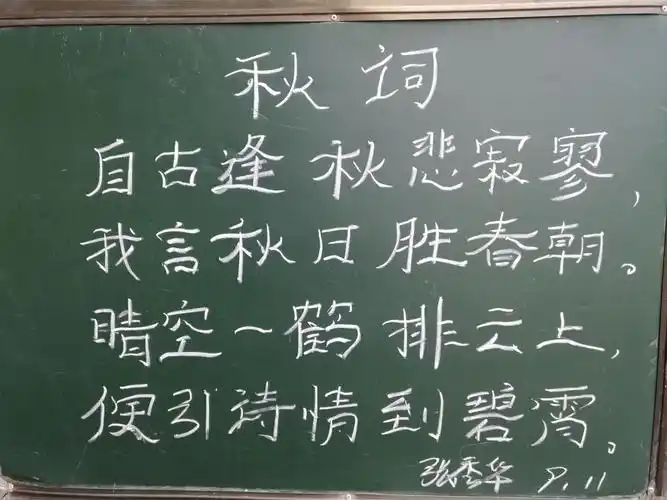 秋词
自古逢秋悲寂寥，
我言秋日胜春朝。
晴空一鹤排云上，
便引诗情到碧霄。
张秀华 9.11